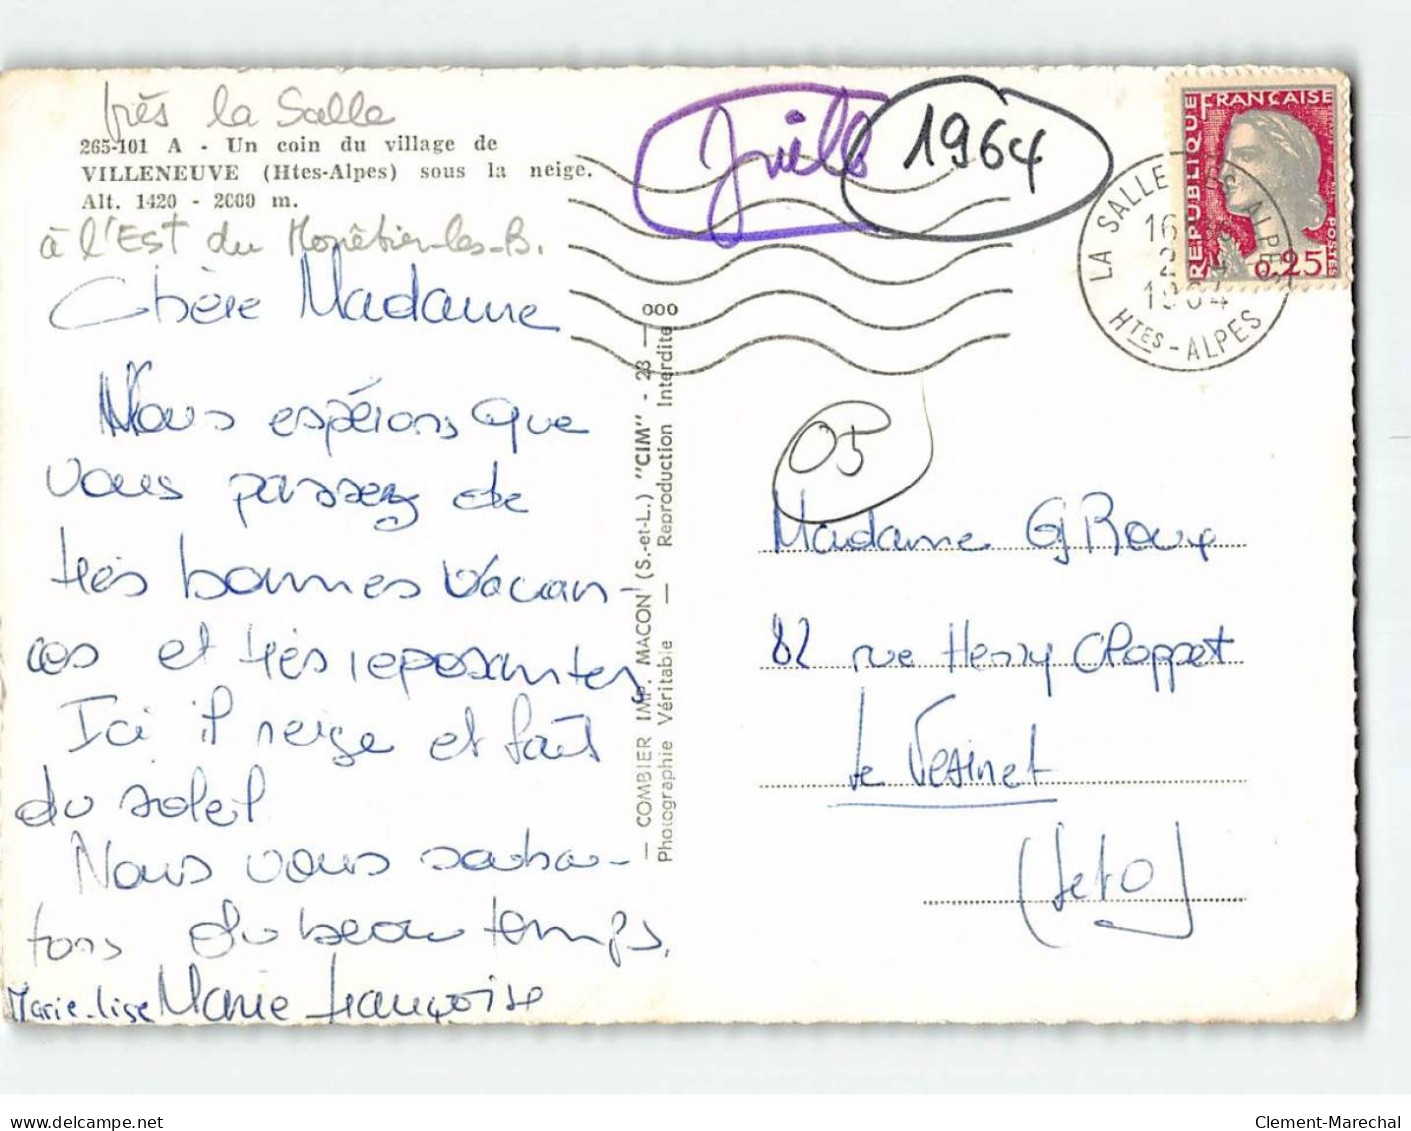 près la Salle
265-101 A - Un coin du village de
VILLENEUVE (Htes-Alpes) sous la neige.
Alt. 1420 - 2000 m.
à l'Est du Monêtier-les-B.
Chère Madame
Nous espérons que
vous passez de
très bonnes vacan-
ces et très reposantes
Ici il neige et fait
du soleil
Nous vous souhai-
tons du beau temps.
Marie-lise Marie françoise
— COMBIER IMP. MACON (S.-et-L.) "CIM" - 23 — ooo
Photographie Véritable — Reproduction Interdite
1964
RÉPUBLIQUE FRANÇAISE
POSTES
0,25
LA SALLE LES ALPES
16
2
1964
HTES-ALPES
05
Madame G Roux
82 rue Henry Cloppet
Le Vesinet
(Set O)
delcampe.net
Clement-Marechal